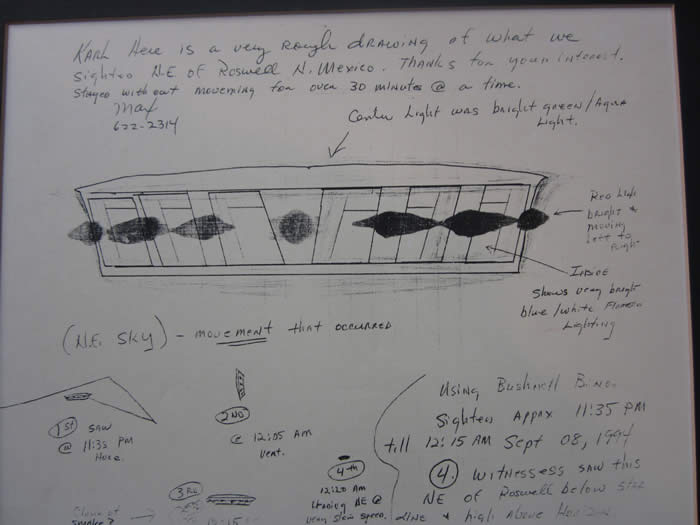 Karl Here is a very rough drawing of what we
sighted N.E. of Roswell N. Mexico. Thanks for your interest.
Stayed without movement for over 30 minutes @ a time.
Max
622-2314
Center Light was bright green/Aqua
Light.
Red light
bright &
moving
left to
Right
Inside
shows very bright
blue/white
Lighting
(N.E. SKY) - movement that occurred
1st saw
@ 11:35 PM
Here.
2ND
@ 12:05 AM
Vert.
3RD
4th
12:20 AM
leaving NE @
very slow speed.
Using Bushnell Bino.
Sighted Appx 11:35 PM
till 12:15 AM Sept 08, 1994
4. witnessess saw this
NE of Roswell below
LINE & high Above Horizon